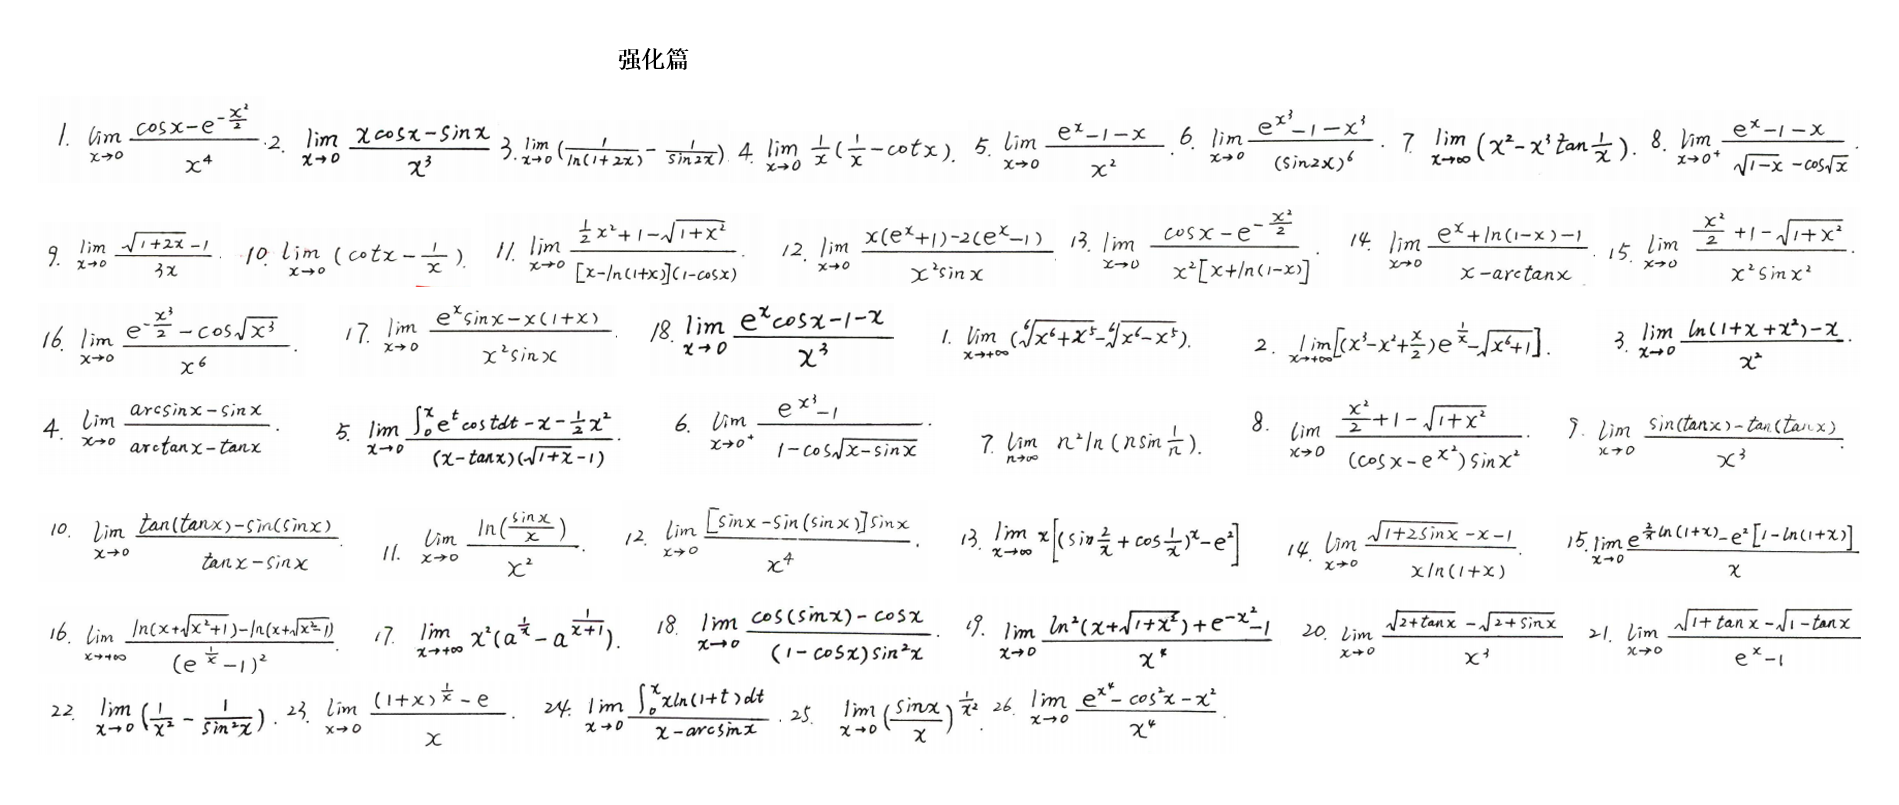 强化篇
1. lim_{x→0} (cosx-e^{-x²/2})/x⁴. 2. lim_{x→0} (xcosx-sinx)/x³ 3. lim_{x→0} (1/ln(1+2x) - 1/sin2x). 4. lim_{x→0} 1/x (1/x - cotx). 5. lim_{x→0} (e^x-1-x)/x². 6. lim_{x→0} (e^{x³}-1-x³)/(sin2x)⁶. 7. lim_{x→∞} (x²-x³tan 1/x). 8. lim_{x→0⁺} (e^x-1-x)/(√(1-x) -cos√x).
9. lim_{x→0} (√(1+2x) -1)/3x. 10. lim_{x→0} (cotx - 1/x). 11. lim_{x→0} (½x²+1-√(1+x²))/([x-ln(1+x)](1-cosx)). 12. lim_{x→0} (x(e^x+1)-2(e^x-1))/(x²sinx). 13. lim_{x→0} (cosx-e^{-x²/2})/(x²[x+ln(1-x)]). 14. lim_{x→0} (e^x+ln(1-x)-1)/(x-arctanx). 15. lim_{x→0} (x²/2 +1-√(1+x²))/(x²sinx²).
16. lim_{x→0} (e^{-x³/2} -cos√(x³))/x⁶. 17. lim_{x→0} (e^x sinx-x(1+x))/(x²sinx). 18. lim_{x→0} (e^x cosx-1-x)/x³ 1. lim_{x→+∞} (⁶√(x⁶+x⁵)-⁶√(x⁶-x⁵)). 2. lim_{x→+∞} [(x³-x²+x/2)e^{1/x}-√(x⁶+1)]. 3. lim_{x→0} (ln(1+x+x²)-x)/x².
4. lim_{x→0} (arcsinx-sinx)/(arctanx-tanx). 5. lim_{x→0} (∫₀^x e^t cost dt-x-½x²)/((x-tanx)(√(1+x)-1)). 6. lim_{x→0⁺} (e^{x³}-1)/(1-cos√(x-sinx)). 7. lim_{n→∞} n²ln(nsin 1/n). 8. lim_{x→0} (x²/2+1-√(1+x²))/((cosx-e^{x²})sinx²). 9. lim_{x→0} (sin(tanx)-tan(tanx))/x³.
10. lim_{x→0} (tan(tanx)-sin(sinx))/(tanx-sinx). 11. lim_{x→0} ln(sinx/x)/x². 12. lim_{x→0} ([sinx-sin(sinx)]sinx)/x⁴. 13. lim_{x→∞} x[(sin 2/x + cos 1/x)^x-e²] 14. lim_{x→0} (√(1+2sinx) -x-1)/(xln(1+x)). 15. lim_{x→0} (e^{2/x ln(1+x)}-e²[1-ln(1+x)])/x
16. lim_{x→+∞} (ln(x+√(x²+1))-ln(x+√(x²-1)))/(e^{1/x}-1)². 17. lim_{x→+∞} x²(a^{1/x}-a^{1/(x+1)}). 18. lim_{x→0} (cos(sinx)-cosx)/((1-cosx)sin²x). 19. lim_{x→0} (ln²(x+√(1+x²))+e^{-x²}-1)/x⁴ 20. lim_{x→0} (√(2+tanx) -√(2+sinx))/x³ 21. lim_{x→0} (√(1+tanx)-√(1-tanx))/(e^x-1)
22. lim_{x→0} (1/x² - 1/sin²x). 23. lim_{x→0} ((1+x)^{1/x}-e)/x. 24. lim_{x→0} (∫₀^x xln(1+t)dt)/(x-arcsinx). 25. lim_{x→0} (sinx/x)^{1/x²}. 26. lim_{x→0} (e^{x⁴}-cos²x-x²)/x⁴.